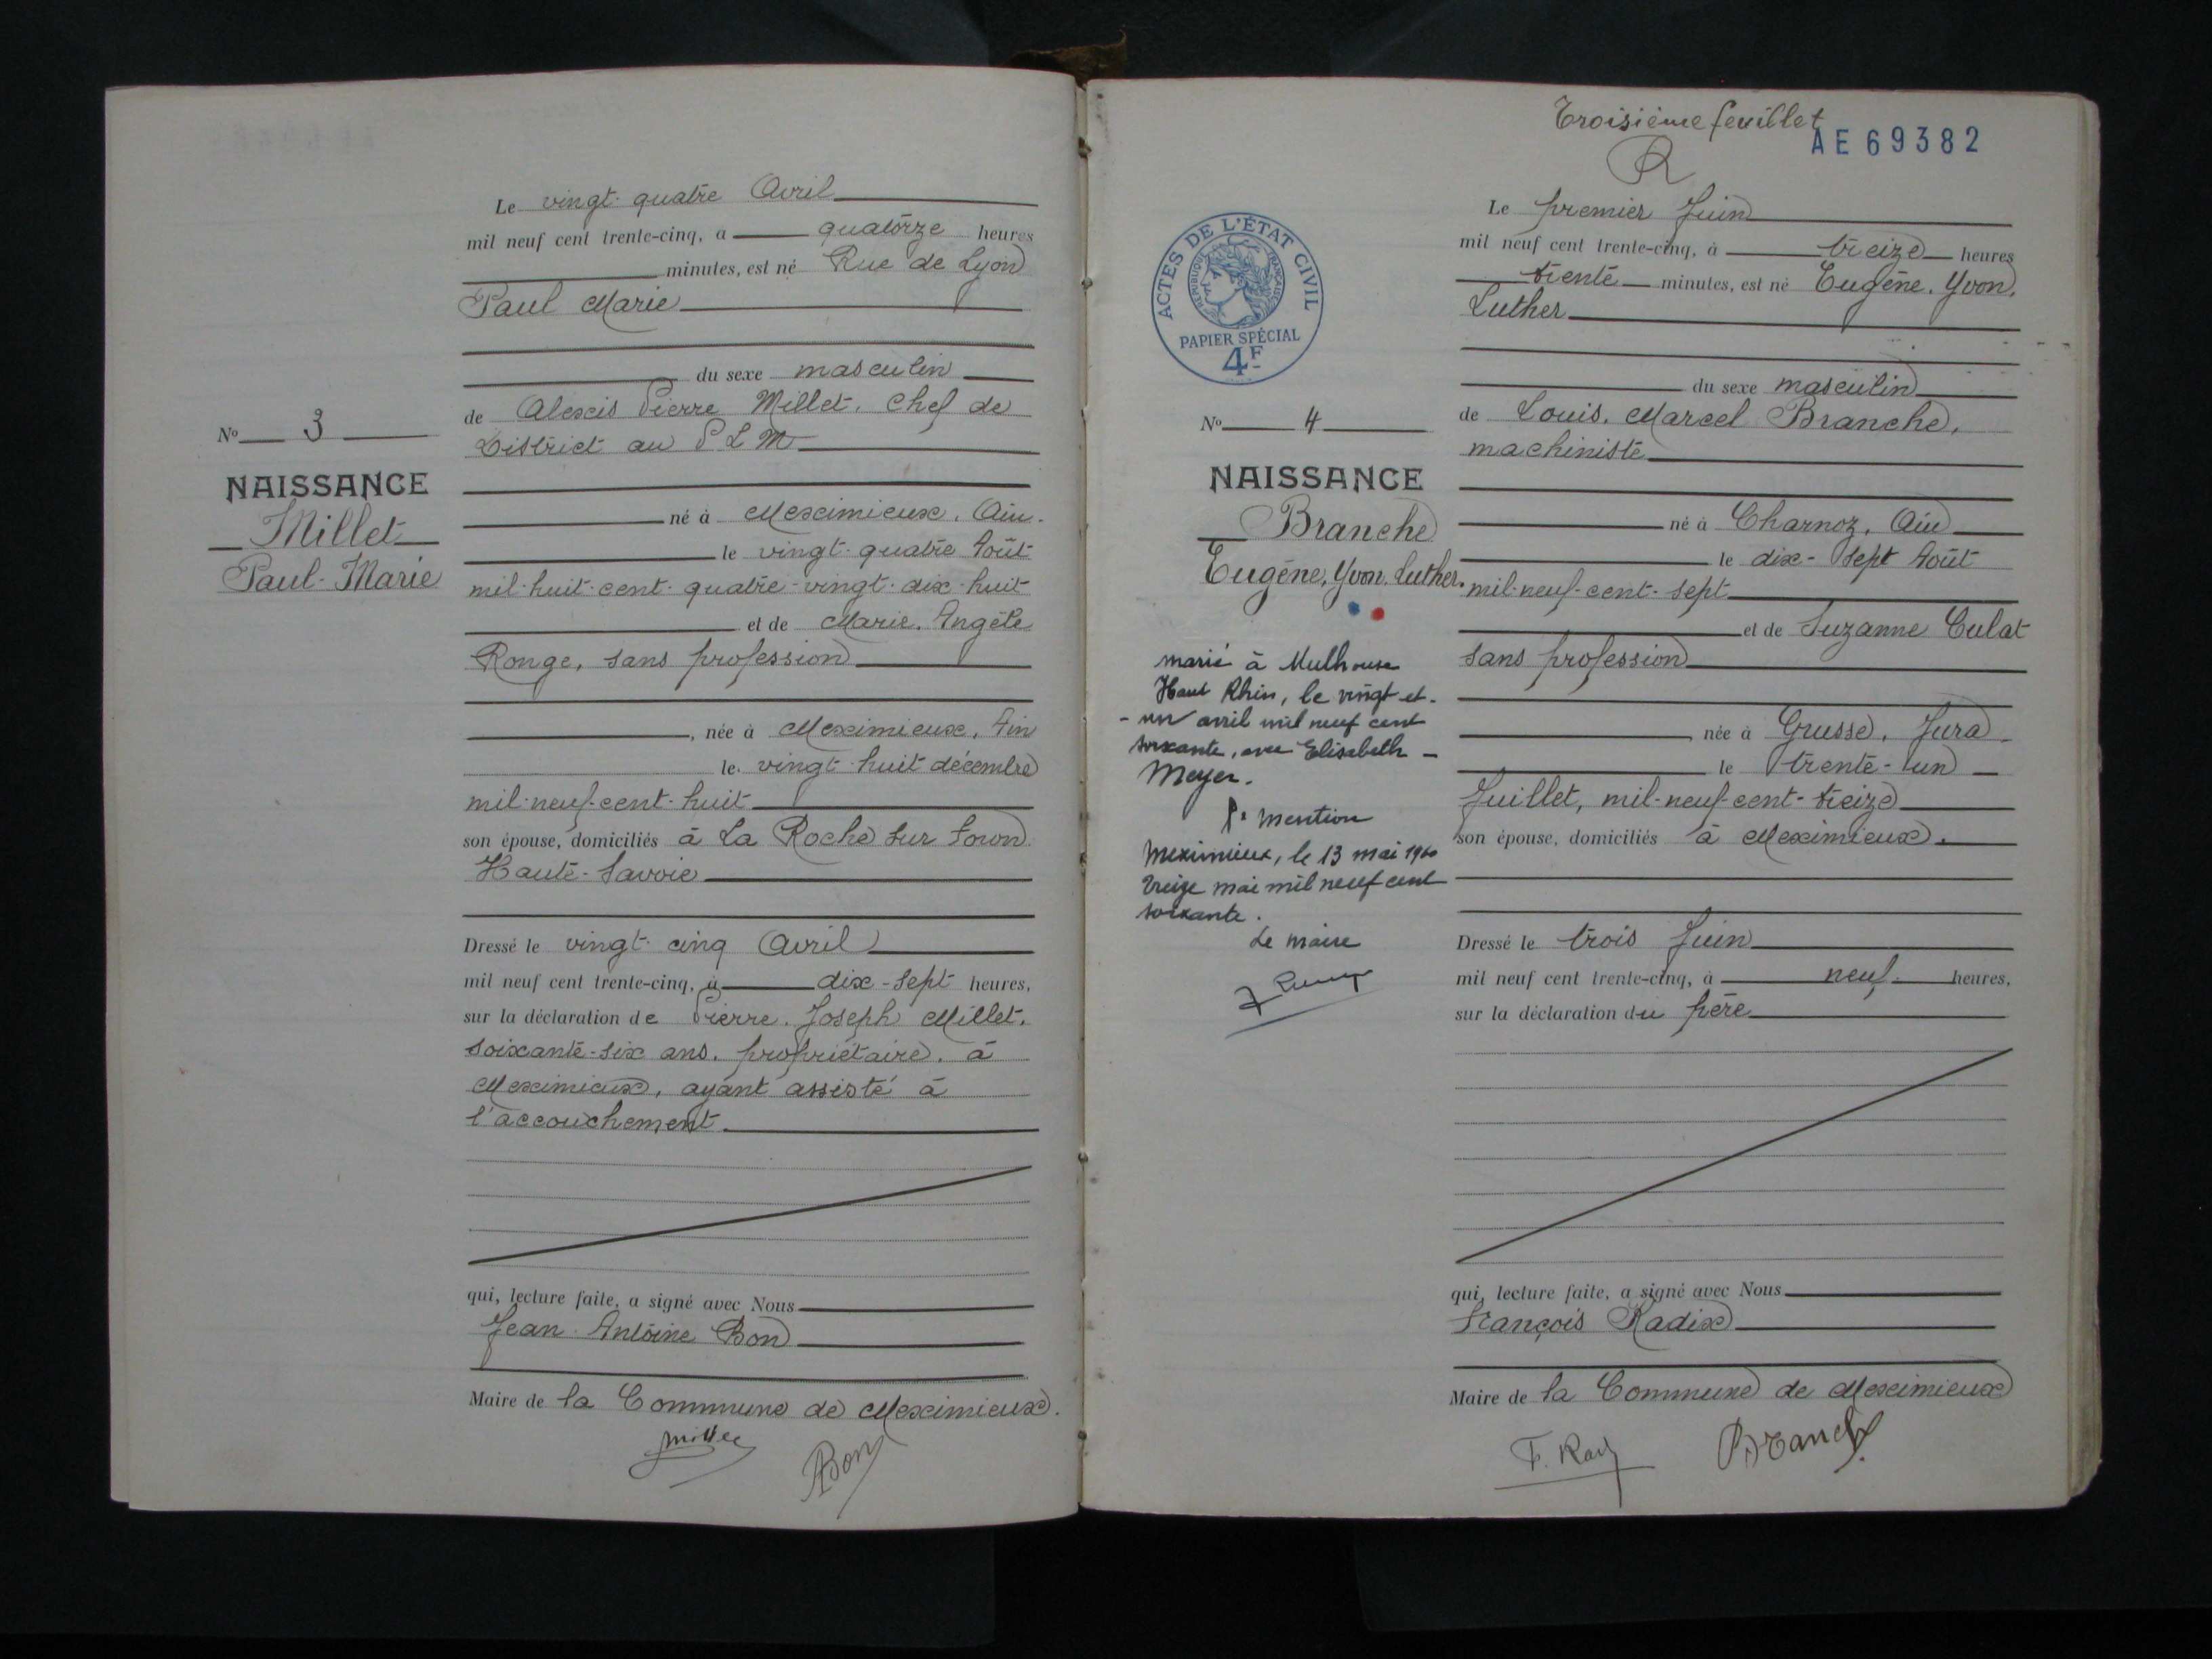 Le vingt-quatre Avril
mil neuf cent trente-cinq, à quatorze heures
minutes, est né Rue de Lyon
Paul Marie
du sexe masculin
de Alexis Pierre Millet, chef de
District au P L M
né à Meximieux, Ain.
le vingt-quatre Août
mil-huit-cent-quatre-vingt-dix-huit
et de Marie, Angèle
Ronge, sans profession
, née à Meximieux, Ain
le vingt-huit décembre
mil-neuf-cent-huit
son épouse, domiciliés à La Roche sur Foron
Haute-Savoie
Dressé le vingt-cinq Avril
mil neuf cent trente-cinq, à dix-sept heures,
sur la déclaration de Pierre, Joseph Millet,
soixante-six ans, propriétaire, à
Meximieux, ayant assisté à
l'accouchement
qui, lecture faite, a signé avec Nous
Jean Antoine Bon
Maire de la Commune de Meximieux.
Millet
Bon
No 3
NAISSANCE
Millet
Paul-Marie
Troisième feuillet
AE 69382
R
ACTES DE L'ÉTAT CIVIL
RÉPUBLIQUE FRANÇAISE
PAPIER SPÉCIAL
4F
No 4
NAISSANCE
Branche
Eugène, Yvon, Luther.
marié à Mulhouse
Haut Rhin, le vingt et-
-un avril mil neuf cent
soixante, avec Elisabeth -
Meyer.
Pr mention
Meximieux, le 13 mai 1960
treize mai mil neuf cent
soixante.
Le maire
Le premier Juin
mil neuf cent trente-cinq, à treize heures
trente minutes, est né Eugène, Yvon,
Luther
du sexe masculin
de Louis, Marcel Branche,
machiniste
né à Charnoz, Ain
le dix-sept Août
mil-neuf-cent-sept
et de Suzanne Culat
sans profession
née à Grusse, Jura
le trente-un
Juillet, mil-neuf-cent-treize
son épouse, domiciliés à Meximieux.
Dressé le trois Juin
mil neuf cent trente-cinq, à neuf heures,
sur la déclaration du père
qui, lecture faite, a signé avec Nous
François Radix
Maire de la Commune de Meximieux
F. Radix
Branche